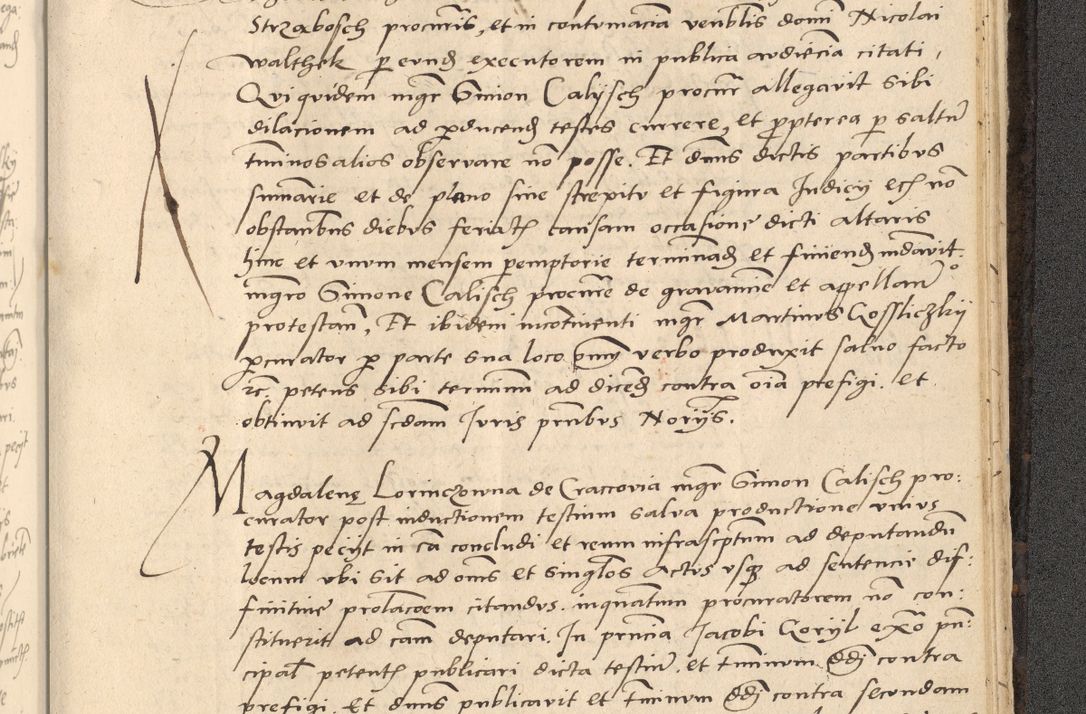 Strzabosch procuris, et in contumacia venblis domi Nicolai
Walthek per eund executorem in publica audiecia citati,
Qui quidem mgr Simon Calisch procur allegavit sibi
dilacionem ad producend testes currere, et propterea per saltu
tminos alios observare no posse. Et dnus dictis partibus
summarie et de plano sine strepitu et figura Iudicij etc no
obstantibus diebus feriat causam occasione dicti altaris
hinc et unum mensem peremptorie terminad et finiend mdavit.
mgro Simone Calisch procure de gravamie et appellan
protestan, Et ibidem incontinenti mgr Martinus Gossliczkij
procurator pro parte sua loco verbo produxit salvo facto
rc. petens sibi terminum ad dicend contra oia prefigi. Et
obtinuit ad scdam Iuris pntibus Norijs.
Magdalenę Lorinczowna de Cracovia mgr Simon Calisch pro:
curator post inductionem testium salva productione unius
testis pecijt in ca concludi et reum infrascptum ad deputandu
locum ubi sit ad oms et singlos actus usque ad sentencie dif:
finitive prolacoem citandus. inquantum procuratorem no con:
stituerit ad cam deputari. In pncia Iacobi Gorijl exo pn:
cipal petent publicari dicta testiu. et tminum ddi contra
prefigi. Et dnus publicavit et tminum ddi contra secundam